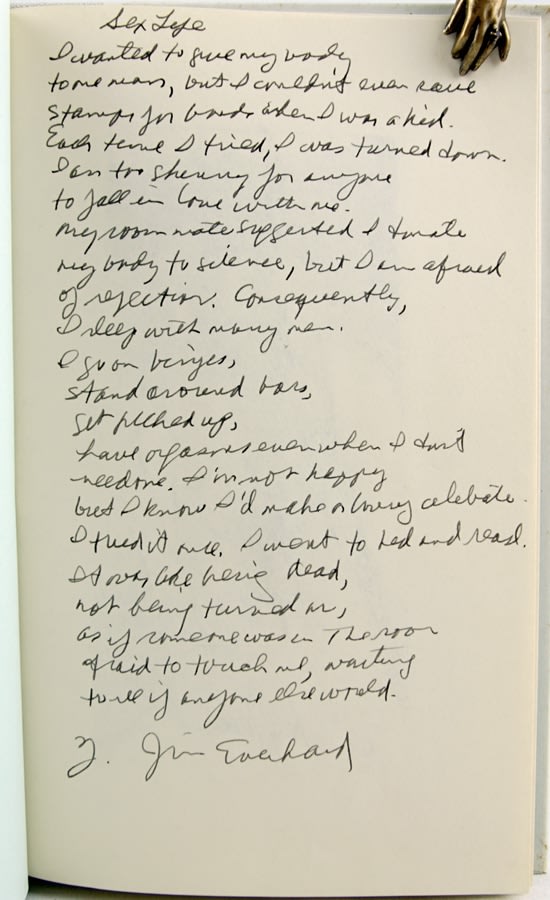 Sex Life
I wanted to give my body
to one man, but I couldn't even save
stamps for birds when I was a kid.
Each time I tried, I was turned down.
I am too skinny for anyone
to fall in love with me.
My roommate suggested I donate
my body to science, but I am afraid
of rejection. Consequently,
I sleep with many men.
I go on binges,
stand around bars,
get picked up,
have orgasms even when I don't
need one. I'm not happy
but I know I'd make a lousy celebate.
I tried it once. I went to bed and read.
It was like being dead,
not being turned on,
as if someone was in the room
afraid to touch me, waiting
to see if anyone else would.
J. Jim Everhard